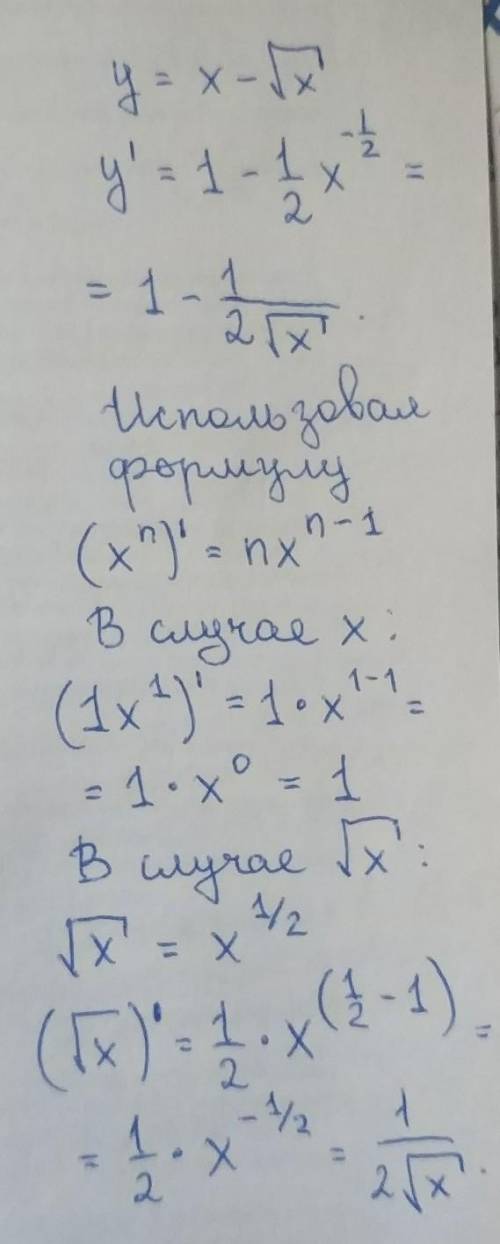 y = x - √x
y' = 1 - 1/2 x^(-1/2) =
= 1 - 1/(2√x).
Использовал
формулу
(xⁿ)' = nx^(n-1)
В случае x:
(1x¹)' = 1·x^(1-1) =
= 1·x⁰ = 1
В случае √x:
√x = x^(1/2)
(√x)' = 1/2·x^(1/2 - 1) =
= 1/2·x^(-1/2) = 1/(2√x).